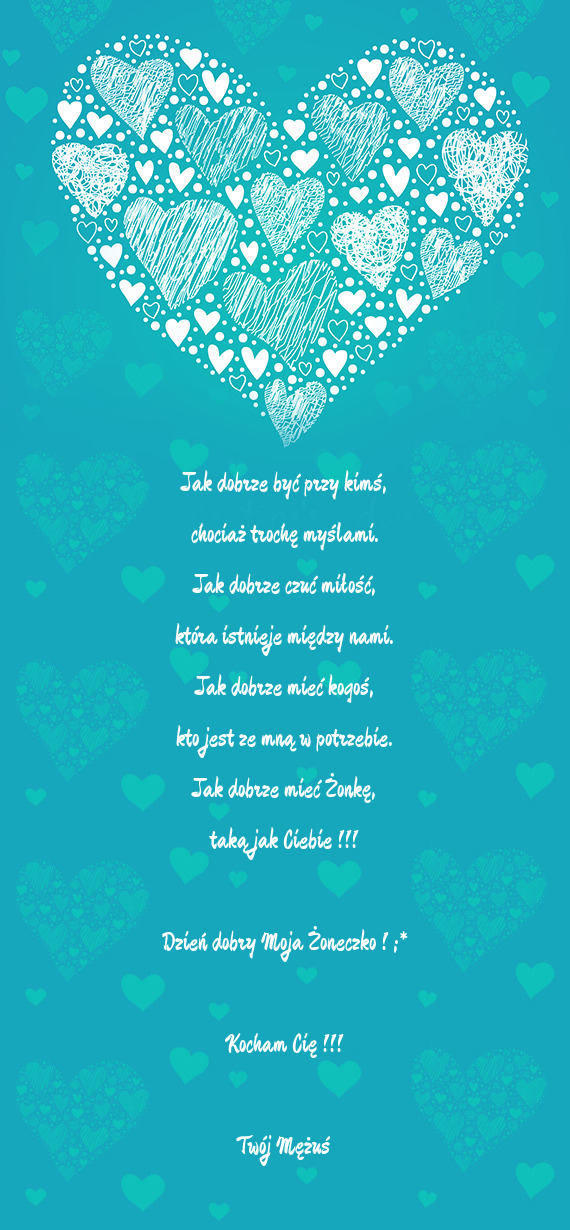 Jak dobrze być przy kimś,
chociaż trochę myślami.
Jak dobrze czuć miłość,
która istnieje między nami.
Jak dobrze mieć kogoś,
kto jest ze mną w potrzebie.
Jak dobrze mieć Żonkę,
taką jak Ciebie !!!
Dzień dobry Moja Żoneczko ! ;*
Kocham Cię !!!
Twój Mężuś